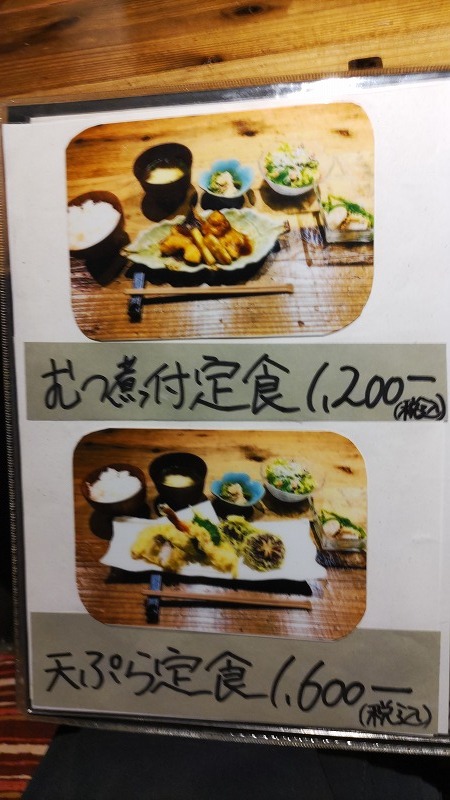 むつ煮付定食 1,200ー
(税込)
天ぷら定食 1,600ー
(税込)